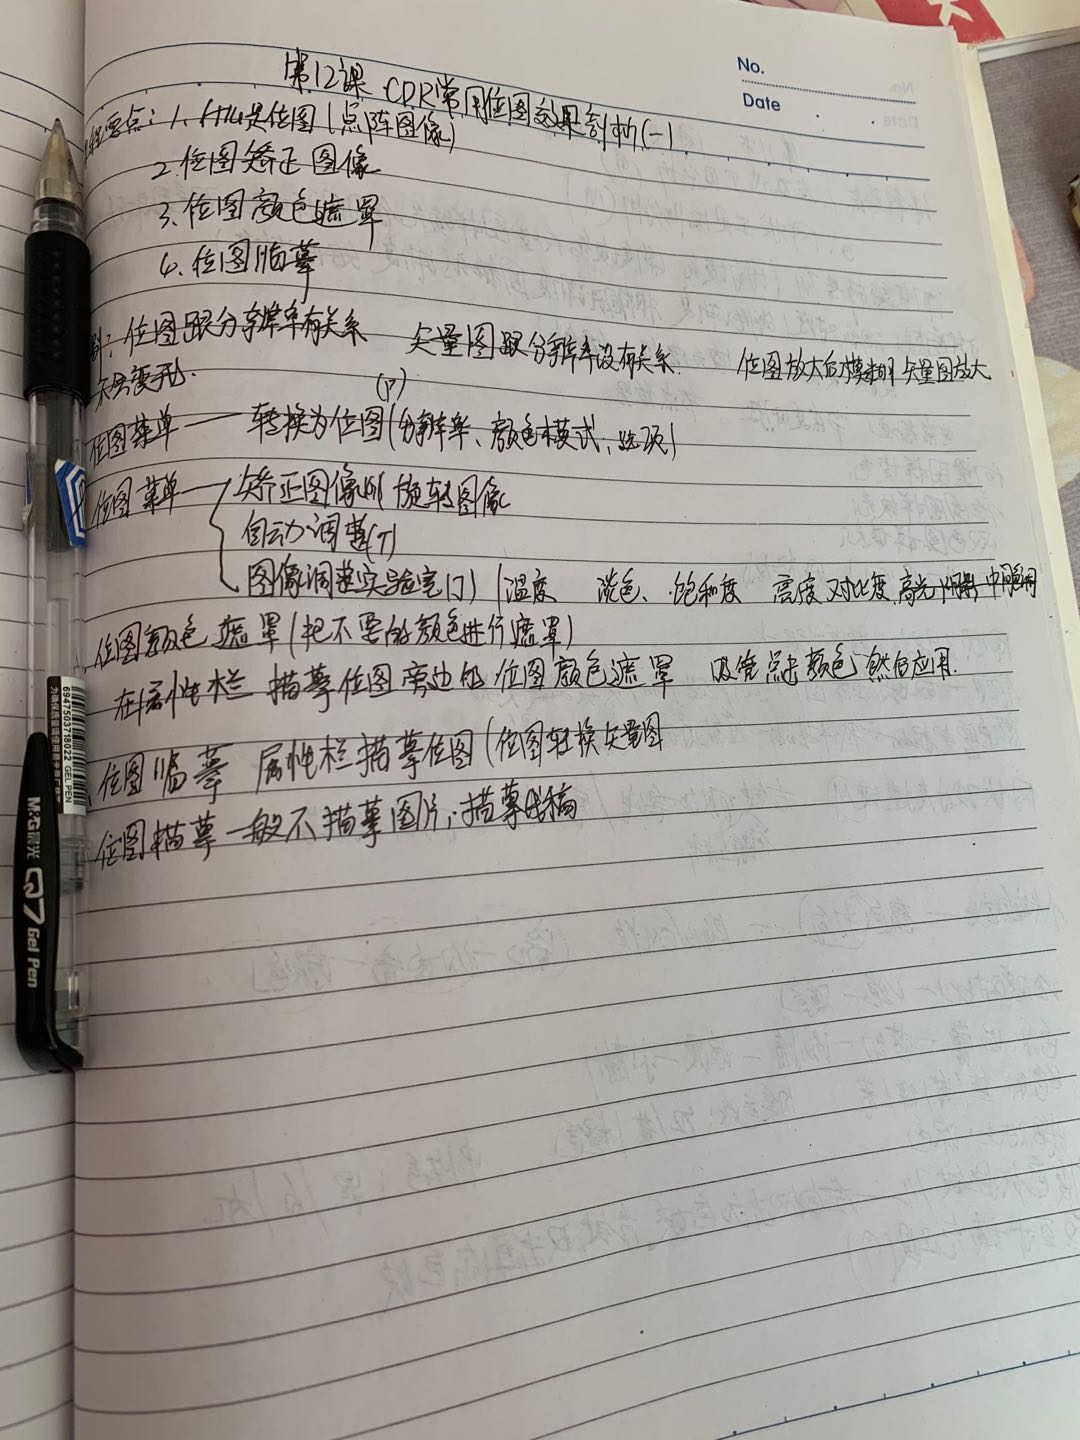 No.
Date
第12课 CDR常用位图效果剖析(一)
课程要点：1、什么是位图(点阵图像)
2、位图矫正图像
3、位图颜色遮罩
4、位图临摹
位图跟分辨率有关系 矢量图跟分辨率没有关系. 位图放大后模糊 矢量图放大
不会变形.
位图菜单 —— 转换为位图(P)(分辨率、颜色模式、选项)
位图菜单 — 矫正图像 旋转图像
自动调整(T)
图像调整实验室(J) (温度 淡色、饱和度 亮度 对比度 高光 阴影 中间调
位图颜色遮罩(把不要的颜色进行遮罩)
在属性栏 描摹位图旁边的 位图颜色遮罩 吸管点击颜色 然后应用.
位图临摹 属性栏描摹位图(位图转换矢量图
位图描摹一般不描摹图片，描摹线稿
6947503718022 GEL PEN
M&G晨光
Q7 Gel Pen